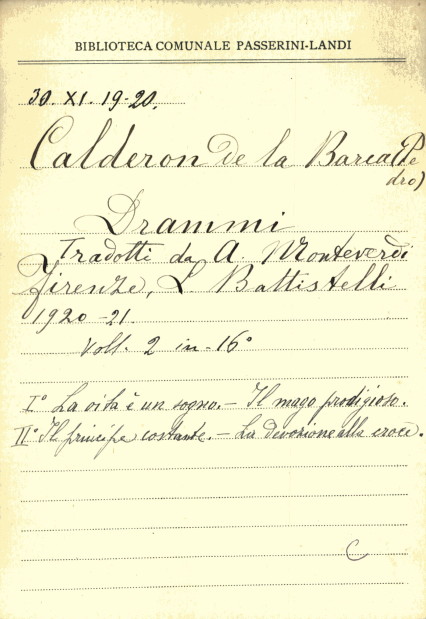 BIBLIOTECA COMUNALE PASSERINI-LANDI
30. XI. 19-20.
Calderon de la Barca (Pe
dro)
Drammi
Tradotti da A. Monteverdi
Firenze, L. Battistelli
1920-21.
Voll. 2 in-16°
I° La vita è un sogno. - Il mago prodigioso.
II° Il principe costante. - La devozione alla croce.
C